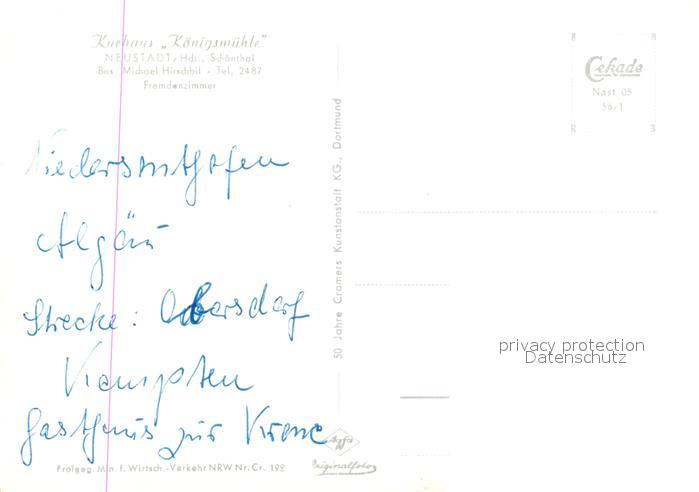 Kurhaus „Königsmühle"
NEUSTADT/Hdt., Schönthal
Bes. Michael Hirschbil - Tel. 2487
Fremdenzimmer
Niedersonthofen
Algäu
Strecke: Obersdorf
Kempten
Gasthaus zur Krone
Prolgeg. Min. f. Wirtsch.-Verkehr NRW Nr. Cr. 192
50 Jahre Cramers Kunstanstalt KG., Dortmund
Cekade
Nast 05
56/1
privacy protection
Datenschutz
Agfa
Originalfoto